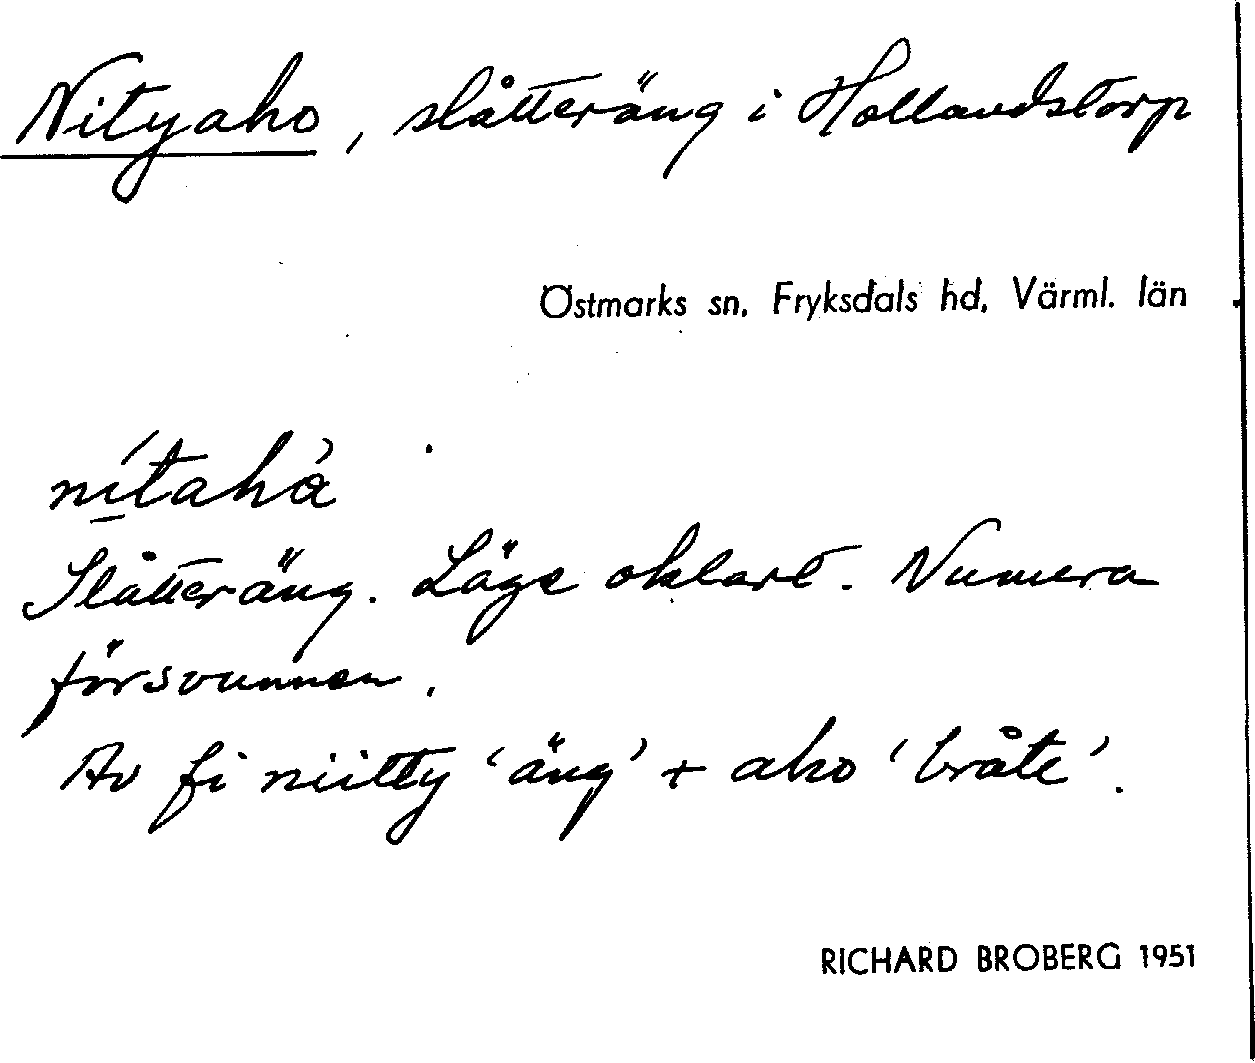 Nityaho, slåtteräng i Hollandstorp
Östmarks sn, Fryksdals hd, Värml. län
Slåtteräng. Läge oklart. Numera
försvunnen.
Av fi niitty 'äng' + aho 'bråte'.
RICHARD BROBERG 1951